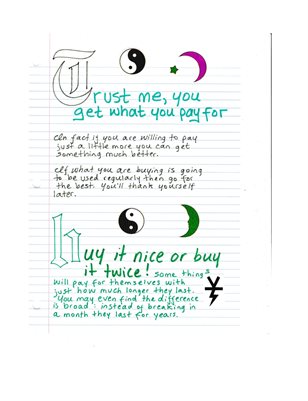 Trust me, you
get what you pay for
In fact if you are willing to pay
just a little more you can get
something much better.
If what you are buying is going
to be used regularly then go for
the best. You'll thank yourself
later.
Buy it nice or buy
it twice! Some things
will pay for themselves with
just how much longer they last.
You may even find the difference
is broad : instead of breaking in
a month they last for years.